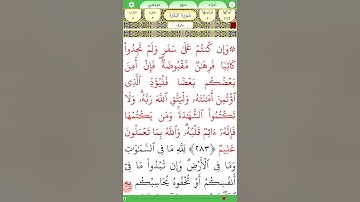 سُورَةُ البَقَرَةِ
۞ وَإِن كُنتُمْ عَلَىٰ سَفَرٍ وَلَمْ تَجِدُوا۟
كَاتِبًا فَرِهَـٰنٌ مَّقْبُوضَةٌ ۖ فَإِنْ أَمِنَ
بَعْضُكُم بَعْضًا فَلْيُؤَدِّ ٱلَّذِى
ٱؤْتُمِنَ أَمَـٰنَتَهُۥ وَلْيَتَّقِ ٱللَّهَ رَبَّهُۥ ۗ وَلَا
تَكْتُمُوا۟ ٱلشَّهَـٰدَةَ ۚ وَمَن يَكْتُمْهَا
فَإِنَّهُۥٓ ءَاثِمٌ قَلْبُهُۥ ۗ وَٱللَّهُ بِمَا تَعْمَلُونَ
عَلِيمٌ ﴿٢٨٣﴾ لِّلَّهِ مَا فِى ٱلسَّمَـٰوَٰتِ
وَمَا فِى ٱلْأَرْضِ ۗ وَإِن تُبْدُوا۟ مَا فِىٓ
أَنفُسِكُمْ أَوْ تُخْفُوهُ يُحَاسِبْكُم بِهِ